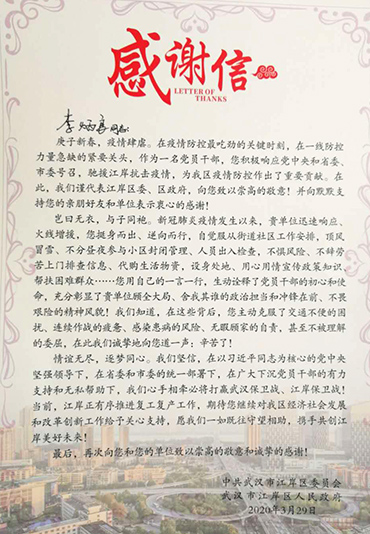 感谢信
LETTER OF
THANKS
李炳喜同志:
庚子新春,疫情肆虐。在疫情防控最吃劲的关键时刻,在一线防控
力量急缺的紧要关头,作为一名党员干部,您积极响应党中央和省委、
市委号召,驰援江岸抗击疫情,为我区疫情防控作出了重要贡献。在
此,我们谨代表江岸区委、区政府,向您致以崇高的敬意!并向默默支
持您的亲朋好友和单位表示衷心的感谢!
岂曰无衣,与子同袍。新冠肺炎疫情发生以来,贵单位迅速响应、
火线增援,您挺身而出、逆向而行,自觉服从街道社区工作安排,顶风
冒雪、不分昼夜参与小区封闭管理、人员出入检查,不惧风险、不辞劳
苦上门排查信息、代购生活物资,设身处地、用心用情宣传政策知识
帮扶困难群众……您用自己的一言一行,生动诠释了党员干部的初心和使
命,充分彰显了贵单位顾全大局、舍我其谁的政治担当和冲锋在前、不畏
艰险的精神风貌!我们知道,在这些背后,您主动克服了交通不便的困
扰、连续作战的疲惫、感染患病的风险、无暇顾家的自责,甚至不被理解
的委屈,在此我们诚挚地向您道一声:辛苦了!
情谊无尽,逐梦同心。我们坚信,在以习近平同志为核心的党中央
坚强领导下,在省委和市委的统一部署下,在广大下沉党员干部的有力
支持和无私帮助下,我们心手相牵必将打赢武汉保卫战、江岸保卫战!
当前,江岸正有序推进复工复产工作,期待您继续对我区经济社会发展
和改革创新工作给予关心支持,愿我们一如既往守望相助,携手共创江
岸美好未来!
最后,再次向您和您的单位致以崇高的敬意和诚挚的感谢!
中共武汉市江岸区委员会
武汉市江岸区人民政府
2020年3月29日